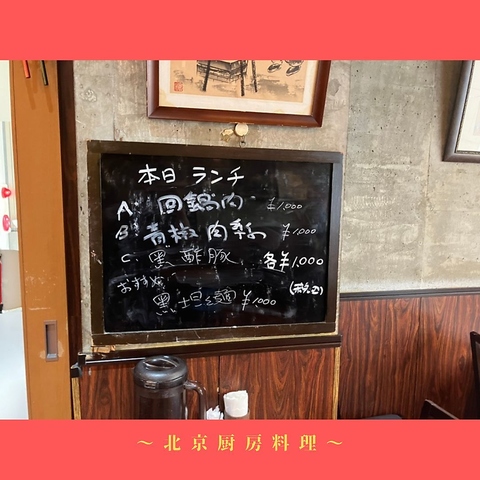 本日 ランチ
A 回鍋肉 ¥1,000
B 青椒肉絲 ¥1,000
C 黒酢豚 各¥1,000
(税込)
おすすめ
黒担々麺 ¥1000
～北京厨房料理～